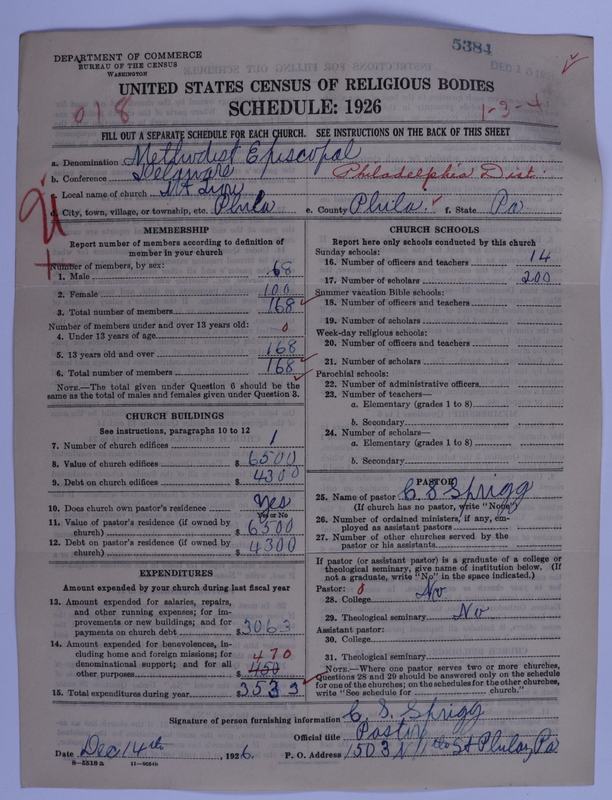 5384
DEC 15
DEPARTMENT OF COMMERCE
BUREAU OF THE CENSUS
WASHINGTON
UNITED STATES CENSUS OF RELIGIOUS BODIES
018
SCHEDULE: 1926
1-3-4
FILL OUT A SEPARATE SCHEDULE FOR EACH CHURCH. SEE INSTRUCTIONS ON THE BACK OF THIS SHEET
a. Denomination Methodist Episcopal
b. Conference Delaware Philadelphia Dist.
c. Local name of church Mt Zion
d. City, town, village, or township, etc. Phila e. County Phila. f. State Pa
MEMBERSHIP
Report number of members according to definition of
member in your church
Number of members, by sex:
1. Male 68
2. Female 100
3. Total number of members 168
Number of members under and over 13 years old:
4. Under 13 years of age 0
5. 13 years old and over 168
6. Total number of members 168
NOTE.—The total given under Question 6 should be the
same as the total of males and females given under Question 3.
CHURCH BUILDINGS
See instructions, paragraphs 10 to 12
7. Number of church edifices 1
8. Value of church edifices $ 6500
9. Debt on church edifices $ 4300
10. Does church own pastor's residence Yes
Yes or No
11. Value of pastor's residence (if owned by
church) $ 6500
12. Debt on pastor's residence (if owned by
church) $ 4300
EXPENDITURES
Amount expended by your church during last fiscal year
13. Amount expended for salaries, repairs,
and other running expenses; for im-
provements or new buildings; and for
payments on church debt $ 3063
14. Amount expended for benevolences, in-
cluding home and foreign missions; for 470
denominational support; and for all
other purposes $ 450
15. Total expenditures during year $ 3533
CHURCH SCHOOLS
Report here only schools conducted by this church
Sunday schools:
16. Number of officers and teachers 14
17. Number of scholars 200
Summer vacation Bible schools:
18. Number of officers and teachers
19. Number of scholars
Week-day religious schools:
20. Number of officers and teachers
21. Number of scholars
Parochial schools:
22. Number of administrative officers
23. Number of teachers—
a. Elementary (grades 1 to 8)
b. Secondary
24. Number of scholars—
a. Elementary (grades 1 to 8)
b. Secondary
PASTOR
25. Name of pastor C. S. Sprigg
(If church has no pastor, write "None")
26. Number of ordained ministers, if any, em-
ployed as assistant pastors
27. Number of other churches served by the
pastor or his assistants
If pastor (or assistant pastor) is a graduate of a college or
theological seminary, give name of institution below. (If
not a graduate, write "No" in the space indicated.)
Pastor: 0
28. College No
29. Theological seminary No
Assistant pastor:
30. College
31. Theological seminary
NOTE.—Where one pastor serves two or more churches,
Questions 28 and 29 should be answered only on the schedule
for one of the churches; on the schedules for the other churches,
write "See schedule for church."
Signature of person furnishing information C. S. Sprigg
Official title Pastor
Date Dec 14th, 1926. P. O. Address 1503 N St Phila, Pa
8-5510 a